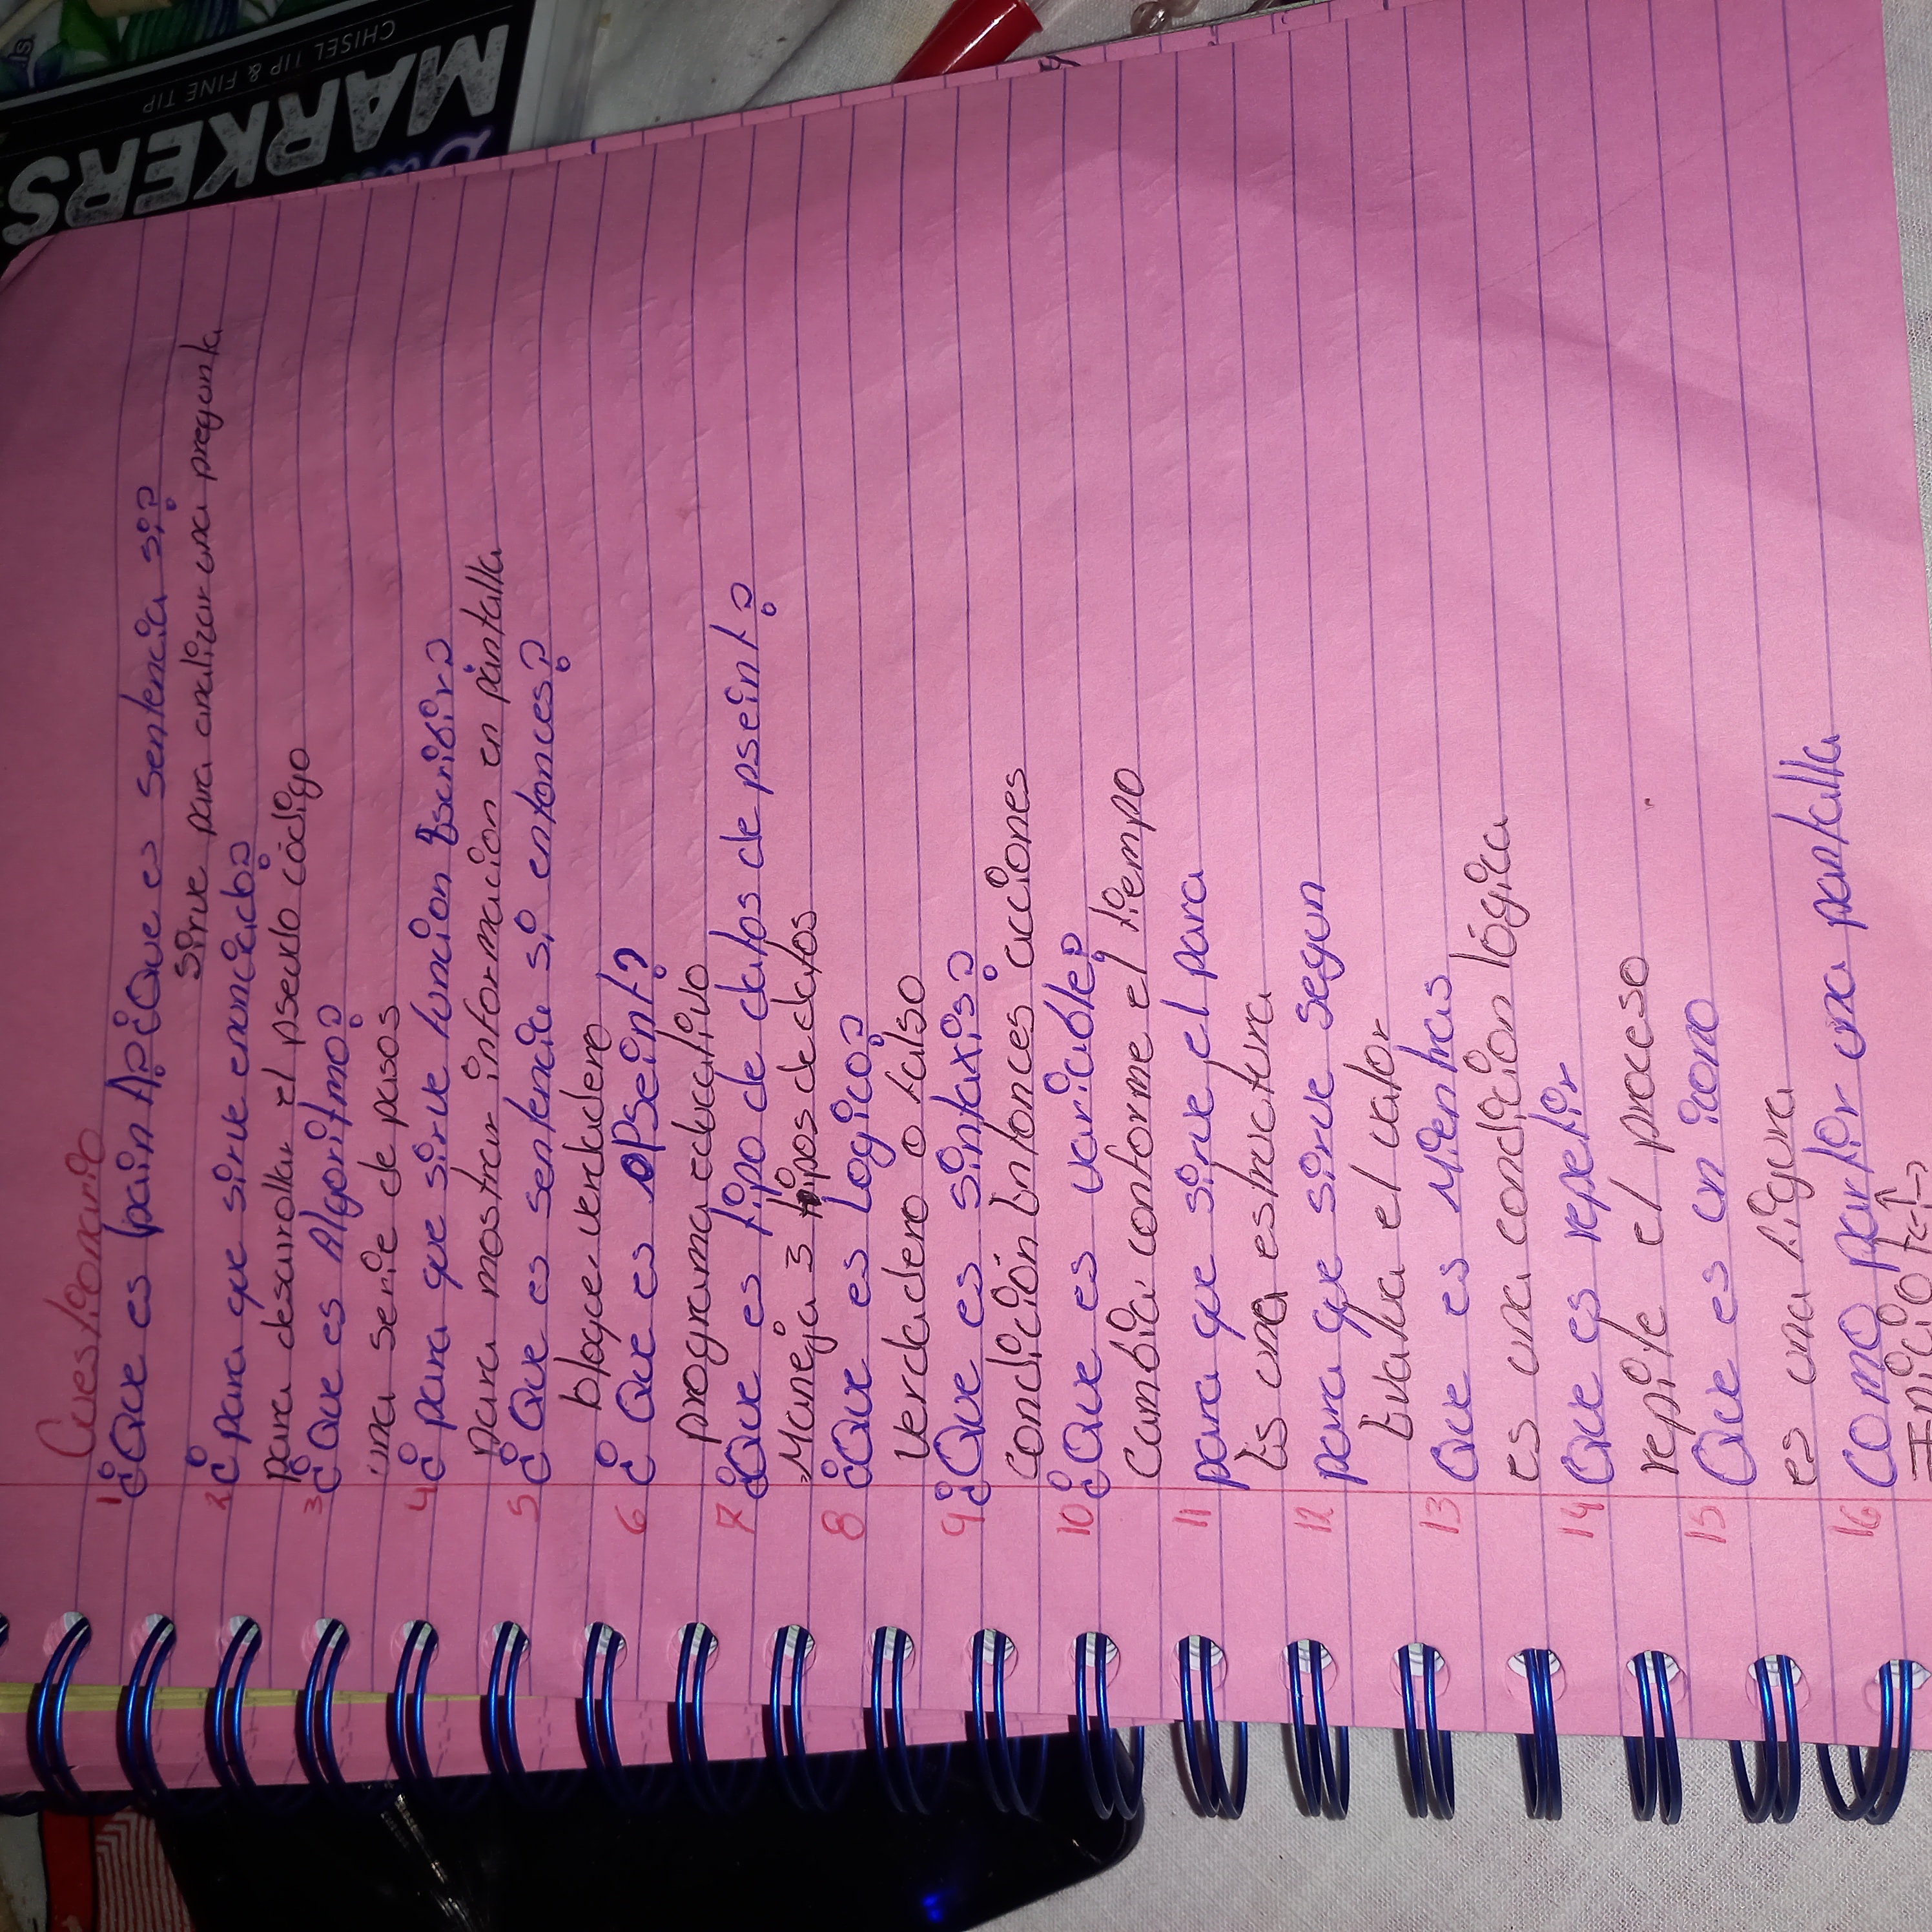 MARKERS
CHISEL TIP & FINE TIP
Cuestionario
1 ¿Que es pain Ap? ¿Que es sentencia si?
Sirve para analizar una pregunta
2 ¿para que sirve enunciado?
para desarrollar el pseudo código
3 ¿Que es Algoritmo?
una serie de pasos
4 ¿para que sirve funcion Escribir?
para mostrar informacion en pantalla
5 ¿Que es sentencia si entonces?
bloque verdadero
6 ¿Que es PSeint?
programa educativo
7 ¿Que es tipo de datos de pseint?
Maneja 3 tipos de datos
8 ¿Que es Logico?
Verdadero o falso
9 ¿Que es sintaxis?
condición Entonces acciones
10 ¿Que es variable?
Cambia conforme el tiempo
11 para que sirve el para
Es una estructura
12 para que sirve segun
Evalua el valor
13 Que es Mientras
es una condicion lógica
14 Que es repetir
repite el proceso
15 Que es un icono
es una figura
16 Como partir una pantalla
Inicio +